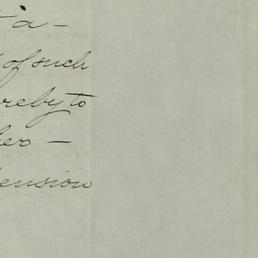 a –
of such
reby to
her –
ension